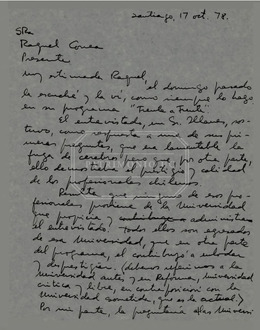 Santiago, 17 oct. 78.
SRa
Raquel Correa
Presente
muy estimada Raquel,
el domingo pasado
la escuché y la ví, como siempre lo hago
en su programa "Frente a Frente".
El entrevistado, un Sr. Illanes, sos-
tuvo, como respuesta a una de sus pri-
meras preguntas, que era lamentable la
fuga de cerebros pero que, por otra parte,
ello demostraba el prestigio y calidad
de los profesionales chilenos.
Resulta que ninguno de esos pro-
fesionales proviene de la Universidad
que propicia y administra
el entrevistado. Todos ellos son egresados
de esa Universidad, que en otra parte
del programa, él contribuyó a
y desprestigiar. (debemos referirnos a la
Universidad antes, y en Reforma, Universidad
crítica y libre, en contraposición con la
Universidad sometida, que es la actual.)
Por mi parte, le preguntaría ¿Las Universi